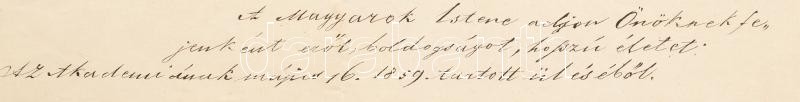 A Magyarok Istene adjon Önöknek fe„
jenként erőt, boldogságot, hoszú életet:
Az Akademiának május 16. 1859. tartott üléséből.